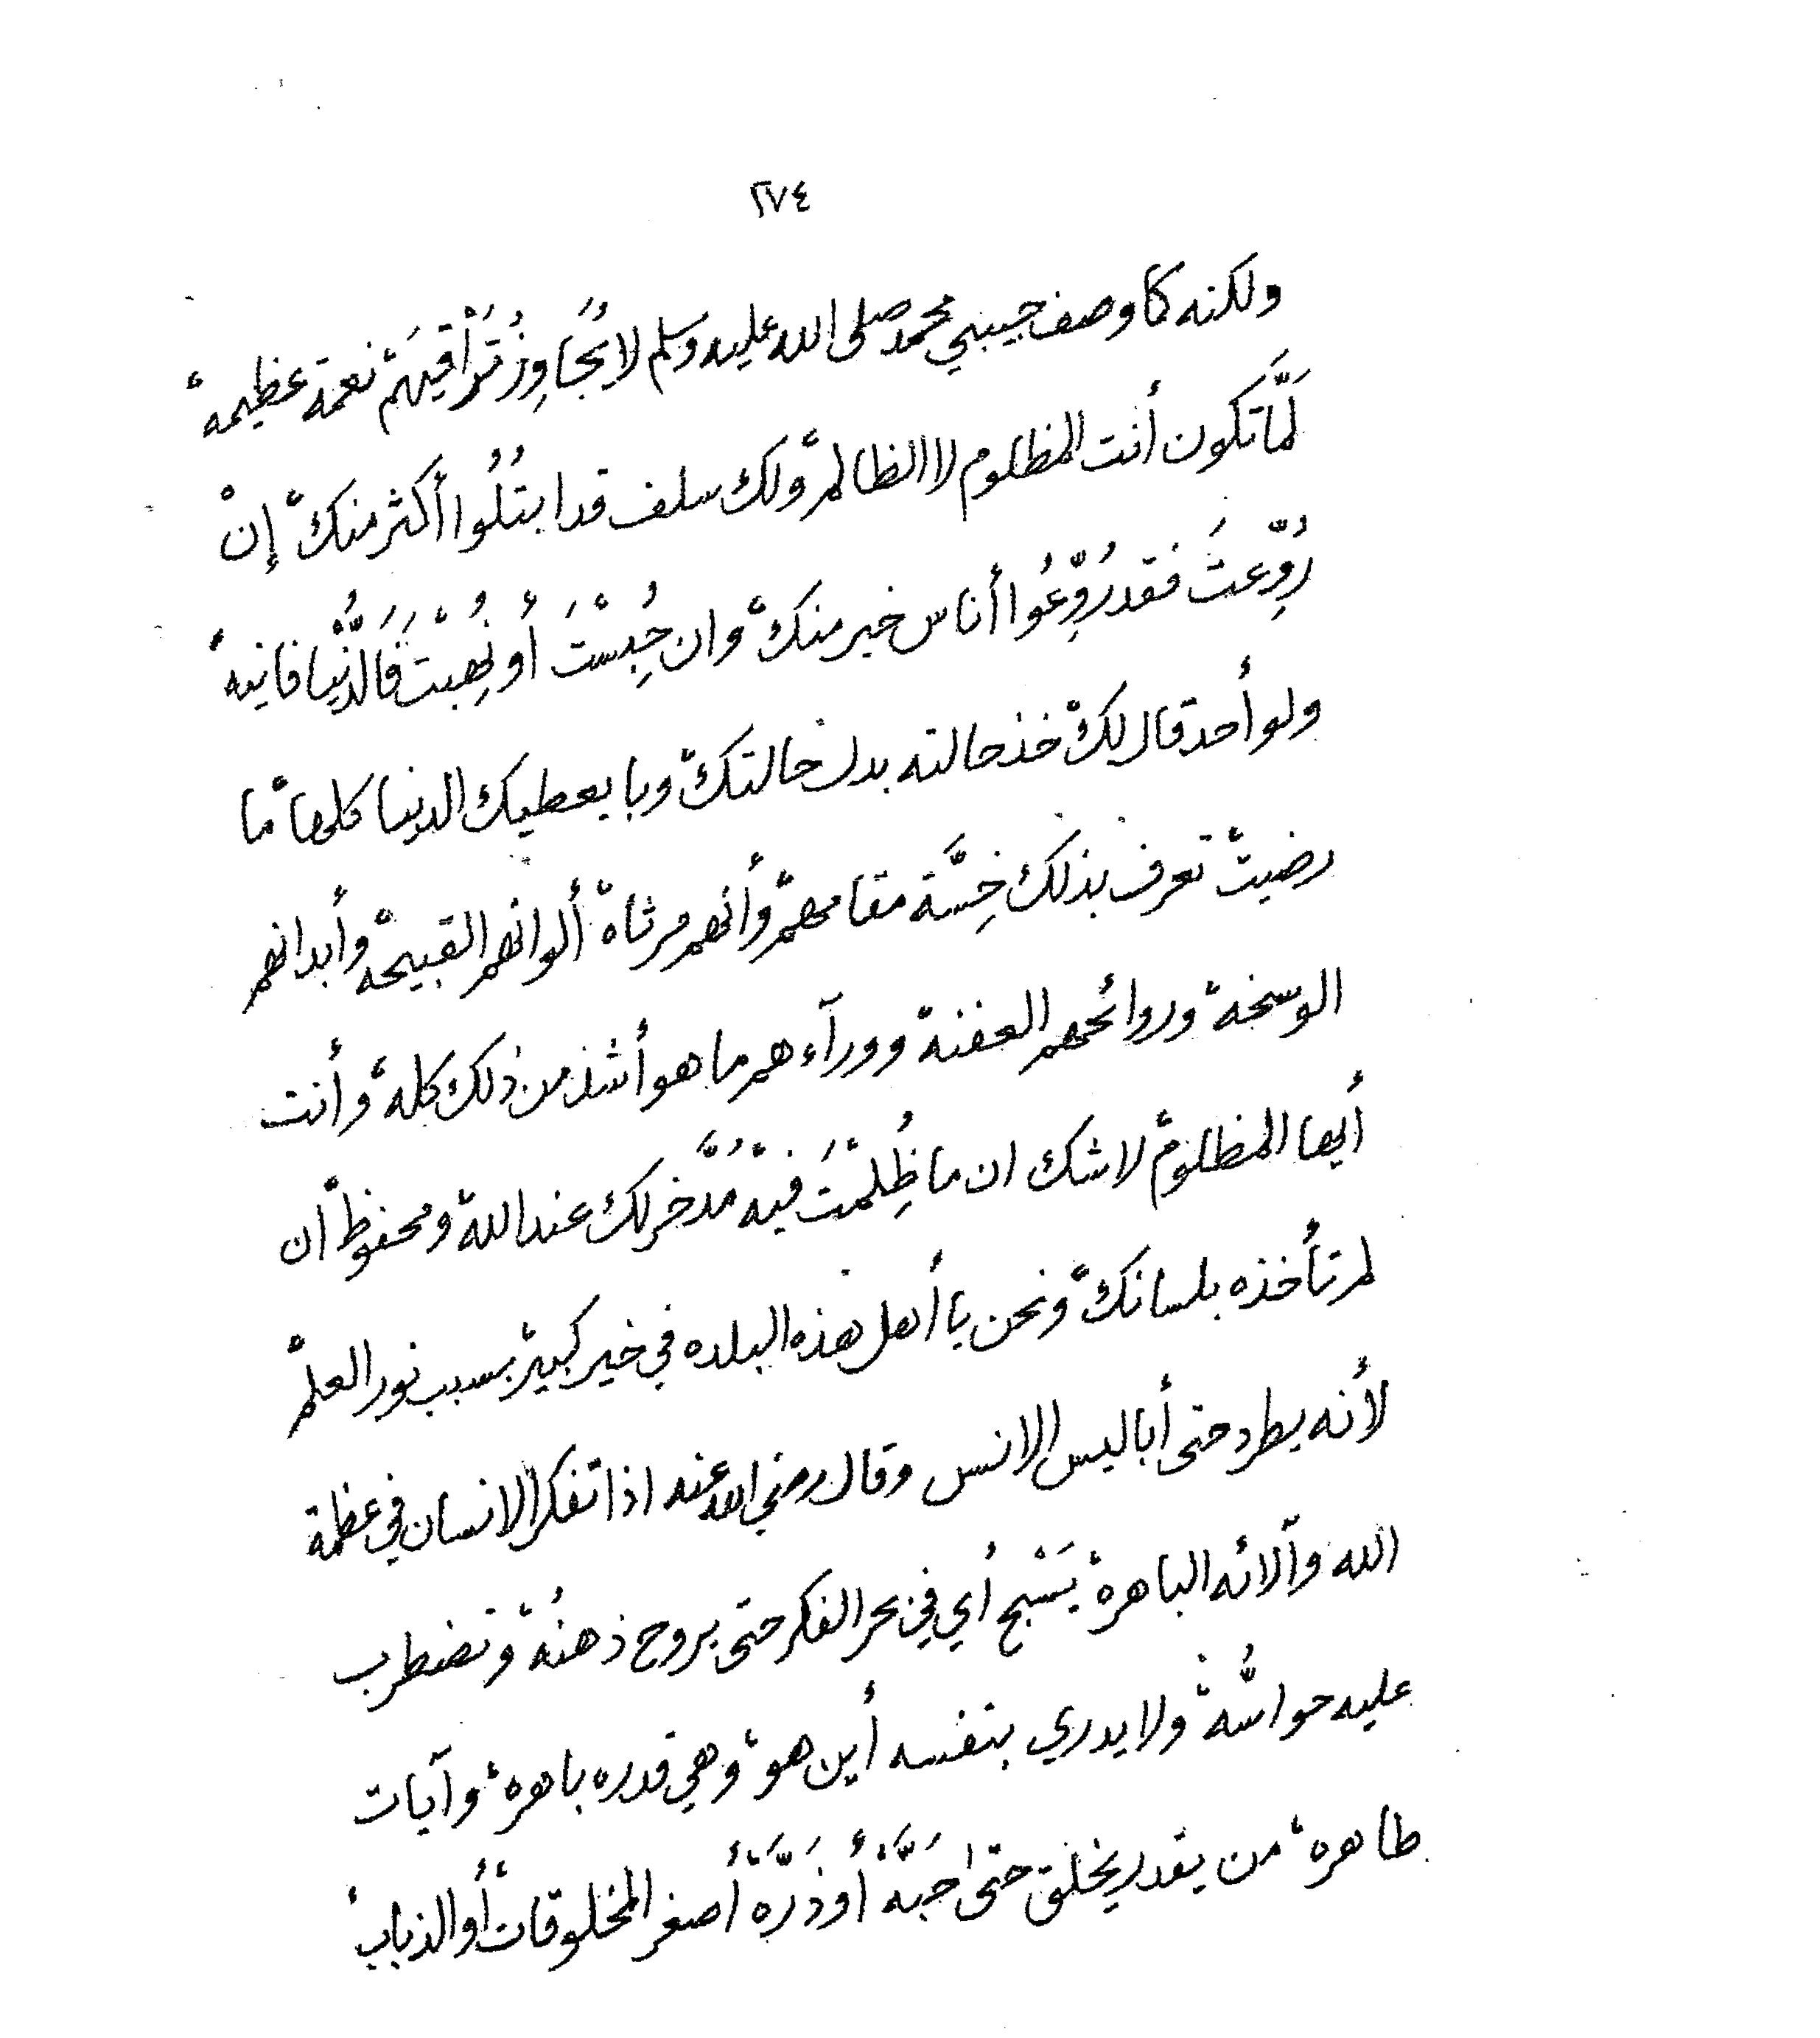 ٢٧٤
ولكنه كما وصف حبيبي محمد صلى الله عليه وسلم لا يُجَاوِزُ تَرَاقِيَهُمْ نعمة عظيمه،
لَمَّا تكون أنت المظلوم لا الظالم، ولك سلف قد ابتُلُوا أكثر منك، إنْ
رُوِّعتَ فقد رُوِّعُوا أناس خير منك، وان حُبِسْتَ أو نُهِبْتَ فَالدُّنْيا فانيه،
ولو أحد قال لك، خذ حالته بدل حالتك، وبا يعطيك الدنيا كلها، ما
رضيت، تعرف بذلك خِسَّة مقامهم، وأنهم مرثاه، ألوانهم القبيحه، وأبدانهم
الوسخه، وروائحهم العفنه، وورآءهم ما هو أشد من ذلك كله، وأنت
أيها المظلوم، لا شك ان ما ظُلِمْتَ فيه، مُدَّخر لك عند الله، ومحفوظ، ان
لم تأخذه بلسانك، ونحن يا أهل هذه البلده في خير كبير، بسبب نور العلم،
لأنه يطرد حتى أباليس الانس وقال رضي الله عنه اذا تفكر الانسان في عظمة
الله وآلائه الباهره، يَسْبح أي في بحر الفكر حتى يروح ذهنُه، وتضطرب
عليه حواسُّه، ولا يدري بنفسه أين هو، وهي قدره باهره، وآيات
ظاهره، من يقدر يخلق حتى حَبَّه، أو ذَرَّه، أصغر المخلوقات، أو الذباب،